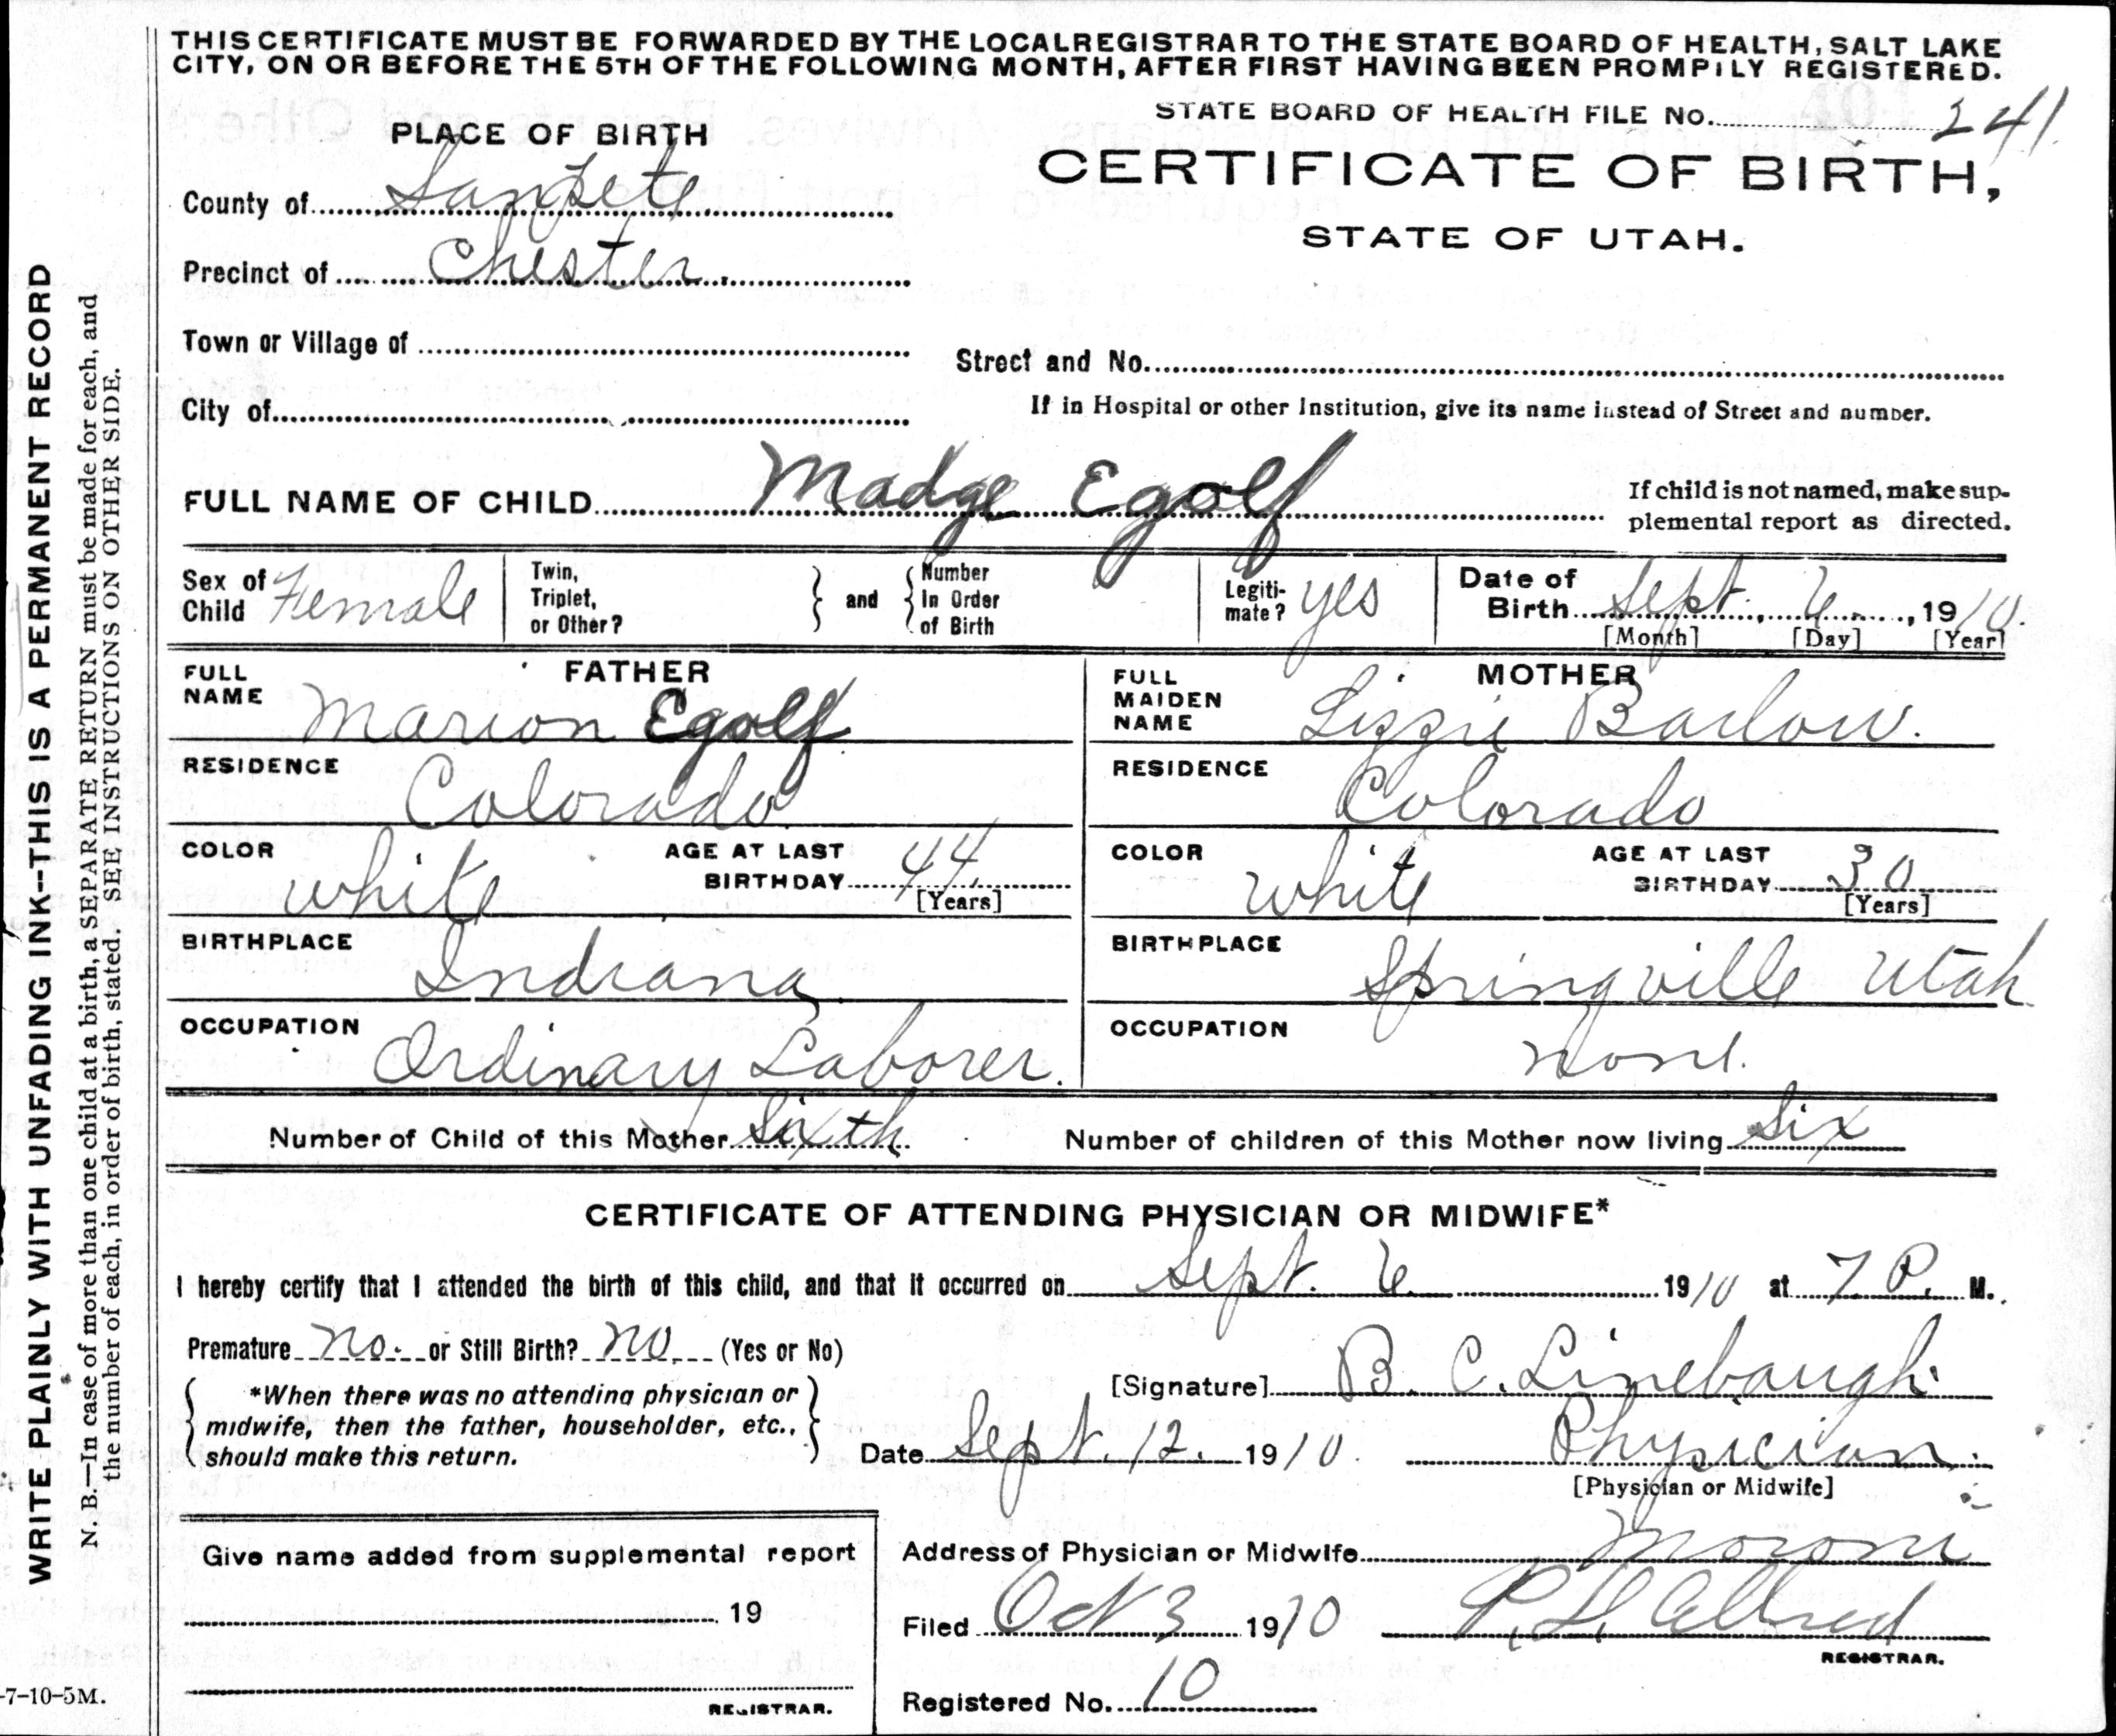 THIS CERTIFICATE MUST BE FORWARDED BY THE LOCAL REGISTRAR TO THE STATE BOARD OF HEALTH, SALT LAKE
CITY, ON OR BEFORE THE 5TH OF THE FOLLOWING MONTH, AFTER FIRST HAVING BEEN PROMPILY REGISTERED.
STATE BOARD OF HEALTH FILE NO. 241
PLACE OF BIRTH
CERTIFICATE OF BIRTH,
STATE OF UTAH.
County of Sanpete
Precinct of Chester.
Town or Village of
Street and No.
City of
If in Hospital or other Institution, give its name instead of Street and number.
FULL NAME OF CHILD Madge Egolf
If child is not named, make sup-
plemental report as directed.
Sex of Child Female
Twin, Triplet, or Other?
and
Number In Order of Birth
Legiti-mate? yes
Date of Birth Sept. 6, 1910.
[Month] [Day] [Year]
FATHER
FULL NAME Marion Egolf
RESIDENCE Colorado
COLOR white
AGE AT LAST BIRTHDAY 44.
[Years]
BIRTHPLACE Indiana
OCCUPATION Ordinary Laborer.
MOTHER
FULL MAIDEN NAME Lizzie Barlow.
RESIDENCE Colorado
COLOR white
AGE AT LAST BIRTHDAY 30
[Years]
BIRTHPLACE Springville Utah
OCCUPATION None.
Number of Child of this Mother Sixth.
Number of children of this Mother now living Six
CERTIFICATE OF ATTENDING PHYSICIAN OR MIDWIFE*
I hereby certify that I attended the birth of this child, and that it occurred on Sept. 6 1910 at 7 P. M.
Premature no. or Still Birth? no (Yes or No)
*When there was no attending physician or
midwife, then the father, householder, etc.,
should make this return.
[Signature] B. C. Linebaugh.
Date Sept. 12. 1910.
Physician.
[Physician or Midwife]
Give name added from supplemental report
19
REGISTRAR.
Address of Physician or Midwife Moroni
Filed Oct 3 1910
P. L. Allred
REGISTRAR.
Registered No. 10
WRITE PLAINLY WITH UNFADING INK--THIS IS A PERMANENT RECORD
N. B.—In case of more than one child at a birth, a SEPARATE RETURN must be made for each, and
the number of each, in order of birth, stated. SEE INSTRUCTIONS ON OTHER SIDE.
-7-10-5M.